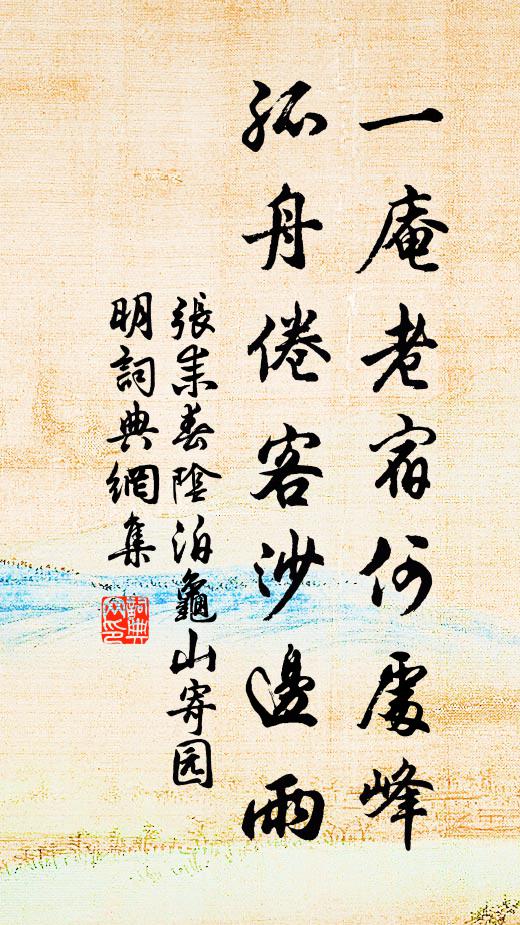 一庵老宿何處峰
孤舟倦客沙邊雨
張耒春陰泊龜山寄园
明詞典網集
詞典
网印